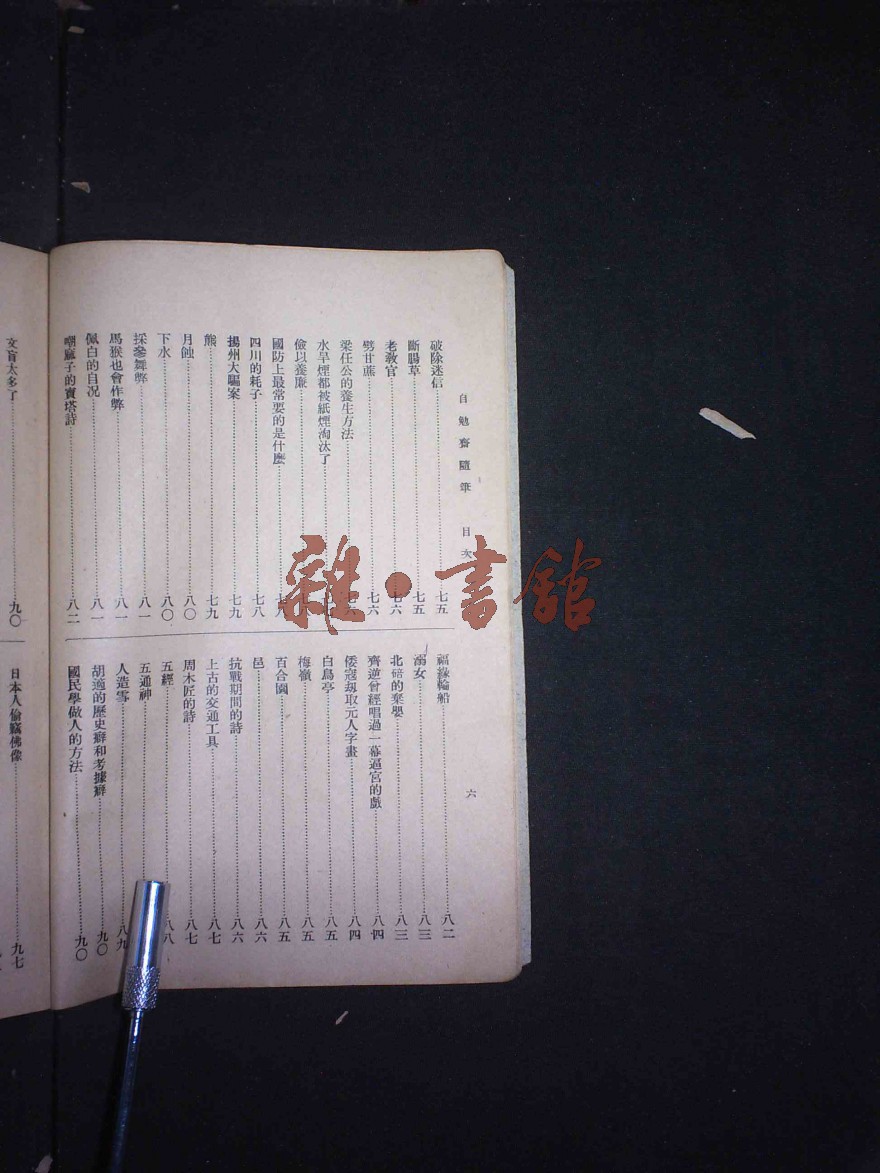 自勉齋隨筆　目次　六
破除迷信 七五
斷腸草 七五
老教官 七六
劈甘蔗 七六
梁任公的養生方法 七六
水旱煙都被紙煙淘汰了
儉以養廉
國防上最常要的是什麼 七八
四川的耗子 七八
揚州大騙案 七九
熊 七九
月蝕 八〇
下水 八〇
採參舞弊 八一
馬猴也會作弊 八一
佩白的自況 八一
嘲麻子的寶塔詩 八二
福緣輪船 八二
溺女 八三
北碚的棄嬰 八三
齊逆曾經唱過一幕逼宮的戲 八四
倭寇刼取元人字畫 八四
白鳥亭 八五
梅嶺 八五
百合園 八五
邑 八六
抗戰期間的詩 八六
上古的交通工具 八七
周木匠的詩 八七
五經 八八
五通神
人造雪 八九
胡適的歷史癖和考據癖 九〇
國民學做人的方法 九〇
文盲太多了 九〇
日本人偷竊佛像 九七
雜·書館